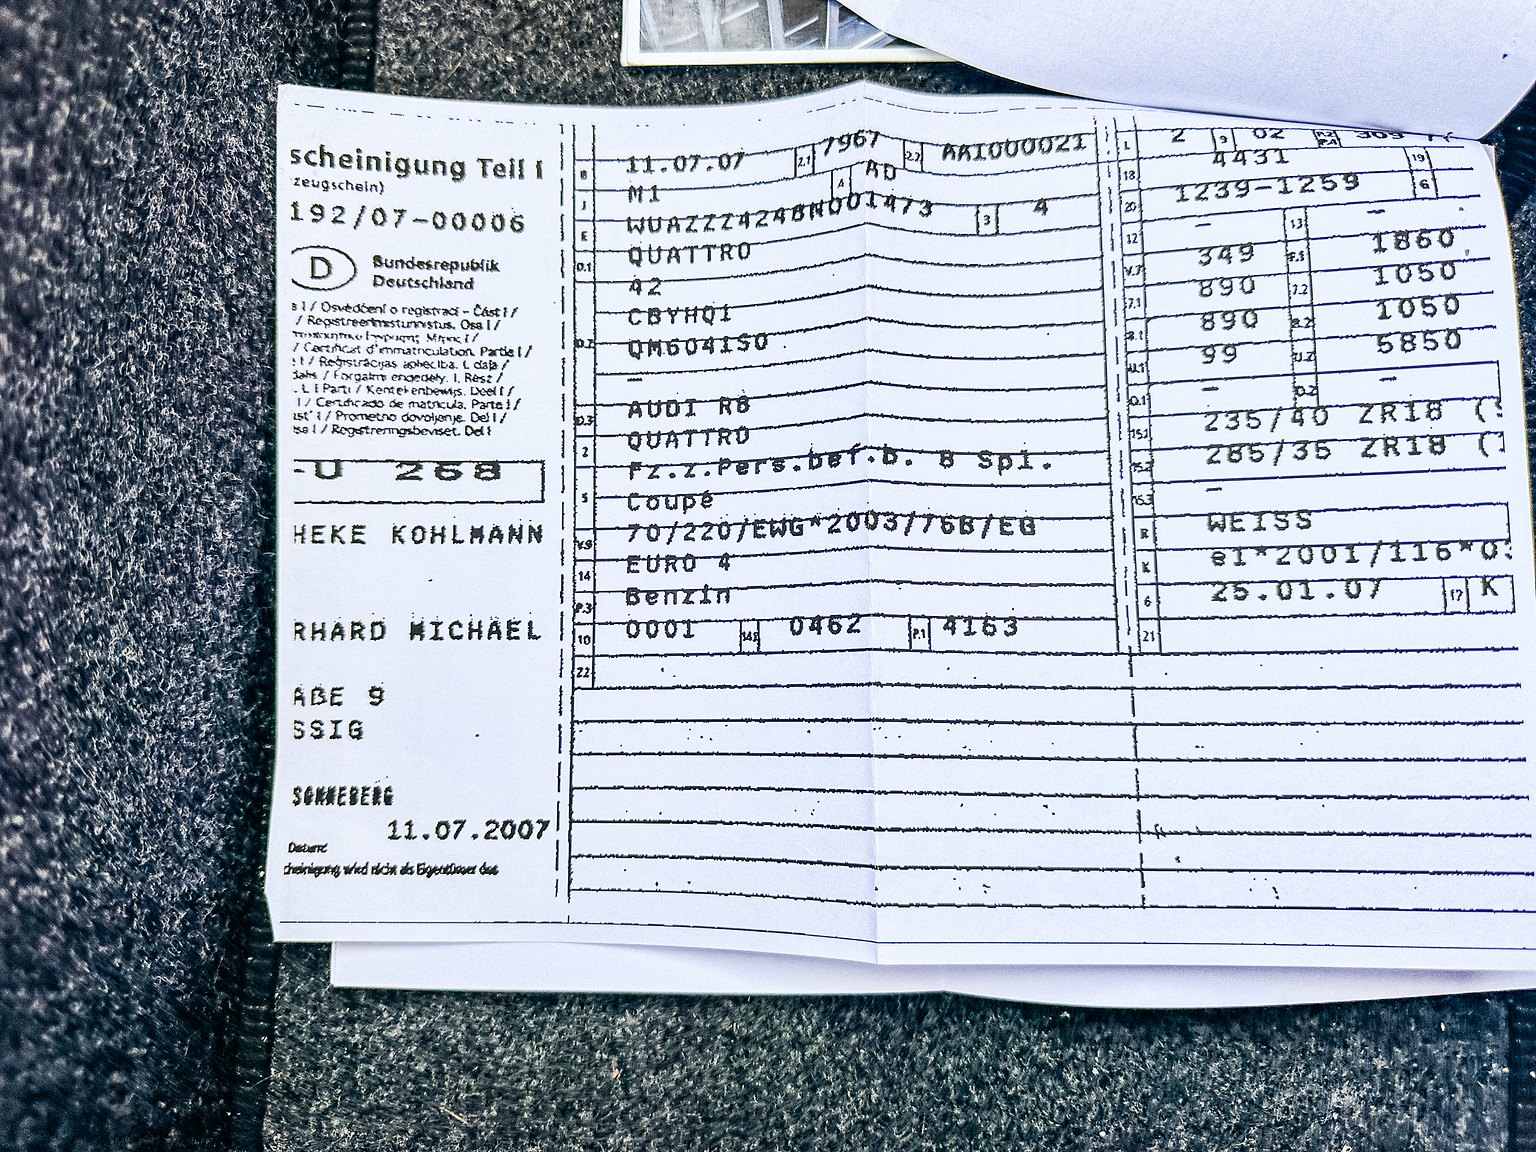 scheinigung Teil I
zeugschein)
192/07-00006
D
Bundesrepublik
Deutschland
/ Osvědčení o registraci - Část I /
/ Registreerimistunnistus. Osa I /
/ Certificat d'immatriculation. Partie I /
/ Reģistrācijas apliecība. I. daļa /
/ Forgalmi engedély. I. Rész /
I Parti / Kentekenbewijs. Deel I /
I / Certificado de matrícula. Parte I /
I / Prometno dovoljenje. Del I /
I / Registreringsbeviset. Del I
-U 268
HEKE KOHLMANN
RHARD MICHAEL
ABE 9
SSIG
SONNEBERG
11.07.2007
Datum:
cheinigung wird nicht als Eigentümer des
B 11.07.07 2.1 7967 2.2 AAI000021
J M1 4 AD
E WUAZZZ4248N001473 3 4
D.1 QUATTRO
42
CBYHQ1
D.2 QM6041S0
-
AUDI R8
D.3 QUATTRO
2 Fz.z.Pers.bef.b. 8 Spl.
5 Coupé
70/220/EWG*2003/76B/EG
V.9 EURO 4
14 Benzin
P.3
10 0001 14.1 0462 P.1 4163
22
L 2 9 02 P.2 P.4 309
18 4431 19
20 1239-1259 G
12 - 13 -
V.7 349 F.1 1860
7.1 890 7.2 1050
8.1 890 8.2 1050
U.1 99 U.2 5850
O.1 - O.2 -
15.1 235/40 ZR18 (
15.2 285/35 ZR18 (
15.3 -
R WEISS
K e1*2001/116*0
6 25.01.07 17 K
21